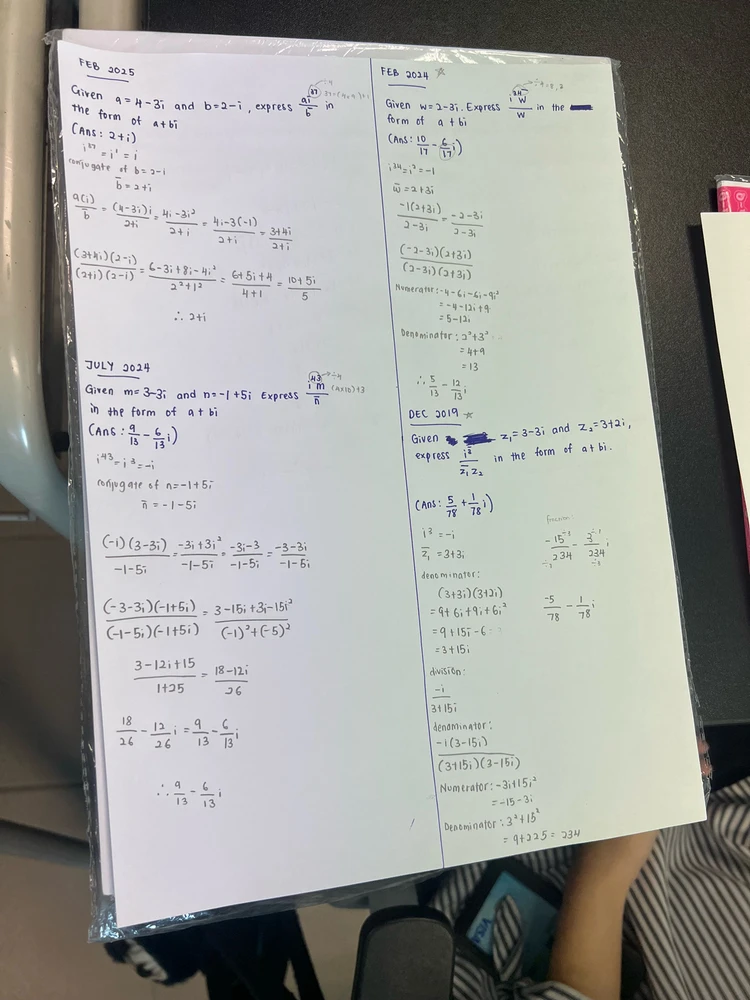 FEB 2025
÷4
37=(9×4)+1
Given a=4-3i and b=2-i, express ai^37/b̄ in
the form of a+bi
(Ans: 2+i)
i^37 = i^1 = i
conjugate of b=2-i
b̄=2+i
a(i)/b̄ = (4-3i)i/2+i = 4i-3i²/2+i = 4i-3(-1)/2+i = 3+4i/2+i
(3+4i)(2-i)/(2+i)(2-i) = 6-3i+8i-4i²/2²+1² = 6+5i+4/4+1 = 10+5i/5
∴ 2+i
JULY 2024
÷4
(4×10)+3
Given m=3-3i and n=-1+5i Express i^43 m/n̄
in the form of a+bi
(Ans: 9/13 - 6/13 i)
i^43 = i^3 = -i
conjugate of n=-1+5i
n̄ = -1-5i
(-i)(3-3i)/-1-5i = -3i+3i²/-1-5i = -3i-3/-1-5i = -3-3i/-1-5i
(-3-3i)(-1+5i)/(-1-5i)(-1+5i) = 3-15i+3i-15i²/(-1)²+(-5)²
3-12i+15/1+25 = 18-12i/26
18/26 - 12/26 i = 9/13 - 6/13 i
∴ 9/13 - 6/13 i
FEB 2024 ☆
Given w=2-3i. Express i^34 w̄/w in the
form of a+bi
i^34=i²=-1
w̄=2+3i
-1(2+3i)/2-3i = -2-3i/2-3i
(-2-3i)(2+3i)/(2-3i)(2+3i)
Numerator: -4-6i-6i-9i²
= -4-12i+9
= 5-12i
Denominator: 2²+3²
= 4+9
= 13
∴ 5/13 - 12/13 i
DEC 2019 ☆
Given z₁=3-3i and z₂=3+2i,
express i^3/z̄₁z₂ in the form of a+bi.
(Ans: 5/78 + 1/78 i)
i³ = -i
z̄₁ = 3+3i
denominator:
(3+3i)(3+2i)
= 9+6i+9i+6i²
= 9+15i-6
= 3+15i
division:
-i/3+15i
denominator:
-i(3-15i)/(3+15i)(3-15i)
Numerator: -3i+15i²
= -15-3i
Denominator: 3²+15²
= 9+225 = 234
fraction
-15/234 - 3/234 i
-5/78 - 1/78 i
VISA